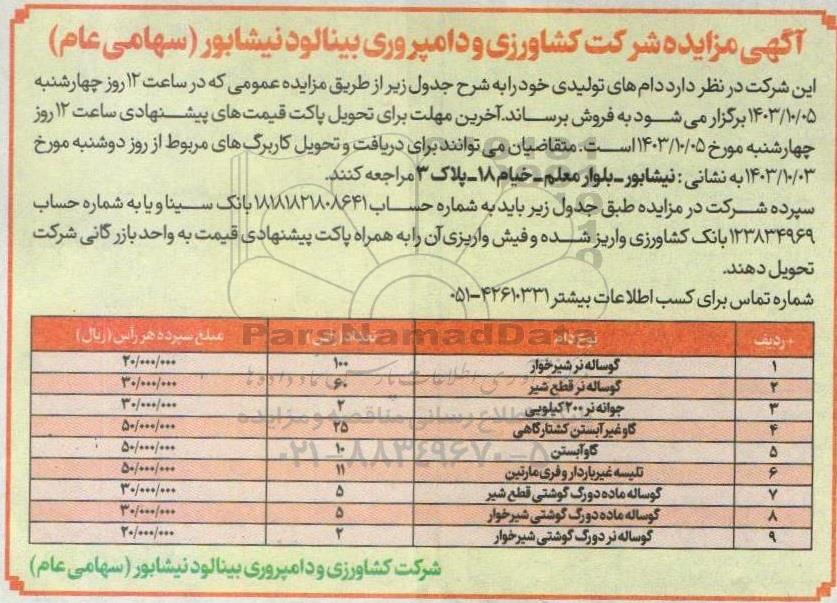 آگهی مزایده شرکت کشاورزی و دامپروری بینالود نیشابور (سهامی عام)
این شرکت در نظر دارد دام های تولیدی خود را به شرح جدول زیر از طریق مزایده عمومی که در ساعت ۱۲ روز چهارشنبه
۱۴۰۳/۱۰/۰۵ برگزار می شود به فروش برساند. آخرین مهلت برای تحویل پاکت قیمت های پیشنهادی ساعت ۱۲ روز
چهارشنبه مورخ ۱۴۰۳/۱۰/۰۵ است. متقاضیان می توانند برای دریافت و تحویل کاربرگ های مربوط از روز دوشنبه مورخ
۱۴۰۳/۱۰/۰۳ به نشانی : نیشابور - بلوار معلم - خیام ۱۸ - پلاک ۳ مراجعه کنند.
سپرده شرکت در مزایده طبق جدول زیر باید به شماره حساب ۱۸۱۸۱۸۲۱۸۰۸۶۴۱ بانک سینا و یا به شماره حساب
۱۲۳۸۳۴۹۶۹ بانک کشاورزی واریز شده و فیش واریزی آن را به همراه پاکت پیشنهادی قیمت به واحد بازرگانی شرکت
تحویل دهند.
شماره تماس برای کسب اطلاعات بیشتر ۴۲۶۱۰۳۳۱-۰۵۱
ردیف نوع دام تعداد (رأس) مبلغ سپرده هر رأس (ریال)
۱ گوساله نر شیرخوار ۱۰۰ ۲۰/۰۰۰/۰۰۰
۲ گوساله نر قطع شیر ۶۰ ۳۰/۰۰۰/۰۰۰
۳ جوانه نر ۲۰۰ کیلویی ۲ ۳۰/۰۰۰/۰۰۰
۴ گاو غیر آبستن کشتارگاهی ۲۵ ۵۰/۰۰۰/۰۰۰
۵ گاو آبستن ۱۰ ۵۰/۰۰۰/۰۰۰
۶ تلیسه غیر باردار و فری مارتین ۱۱ ۵۰/۰۰۰/۰۰۰
۷ گوساله ماده دورگ گوشتی قطع شیر ۵ ۳۰/۰۰۰/۰۰۰
۸ گوساله ماده دورگ گوشتی شیرخوار ۵ ۳۰/۰۰۰/۰۰۰
۹ گوساله نر دورگ گوشتی شیرخوار ۲ ۲۰/۰۰۰/۰۰۰
شرکت کشاورزی و دامپروری بینالود نیشابور (سهامی عام)
ParsNamadData
اطلاع رسانی مناقصه و مزایده
۰۲۱-۸۸۳۴۹۶۷۰-۵